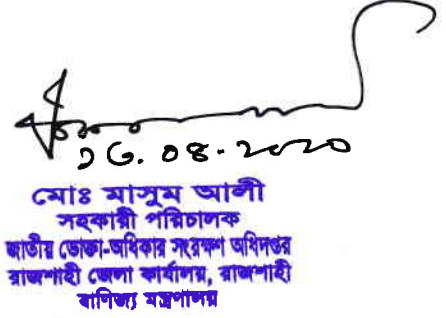 ১৫.০৪.২০২০
মোঃ মাসুম আলী
সহকারী পরিচালক
জাতীয় ভোক্তা-অধিকার সংরক্ষণ অধিদপ্তর
রাজশাহী জেলা কার্যালয়, রাজশাহী
বাণিজ্য মন্ত্রণালয়